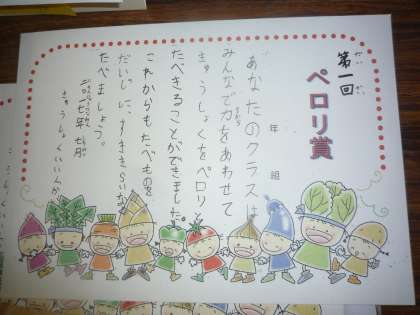 第一回
だい
かい
ペロリ賞
年 組
あなたのクラスは
みんなで力をあわせて
きゅうしょくをペロリ
たべきることができました。
これからもたべものを
だいじに、すききらいなく
たべましょう。
きゅうしょくいいんかい